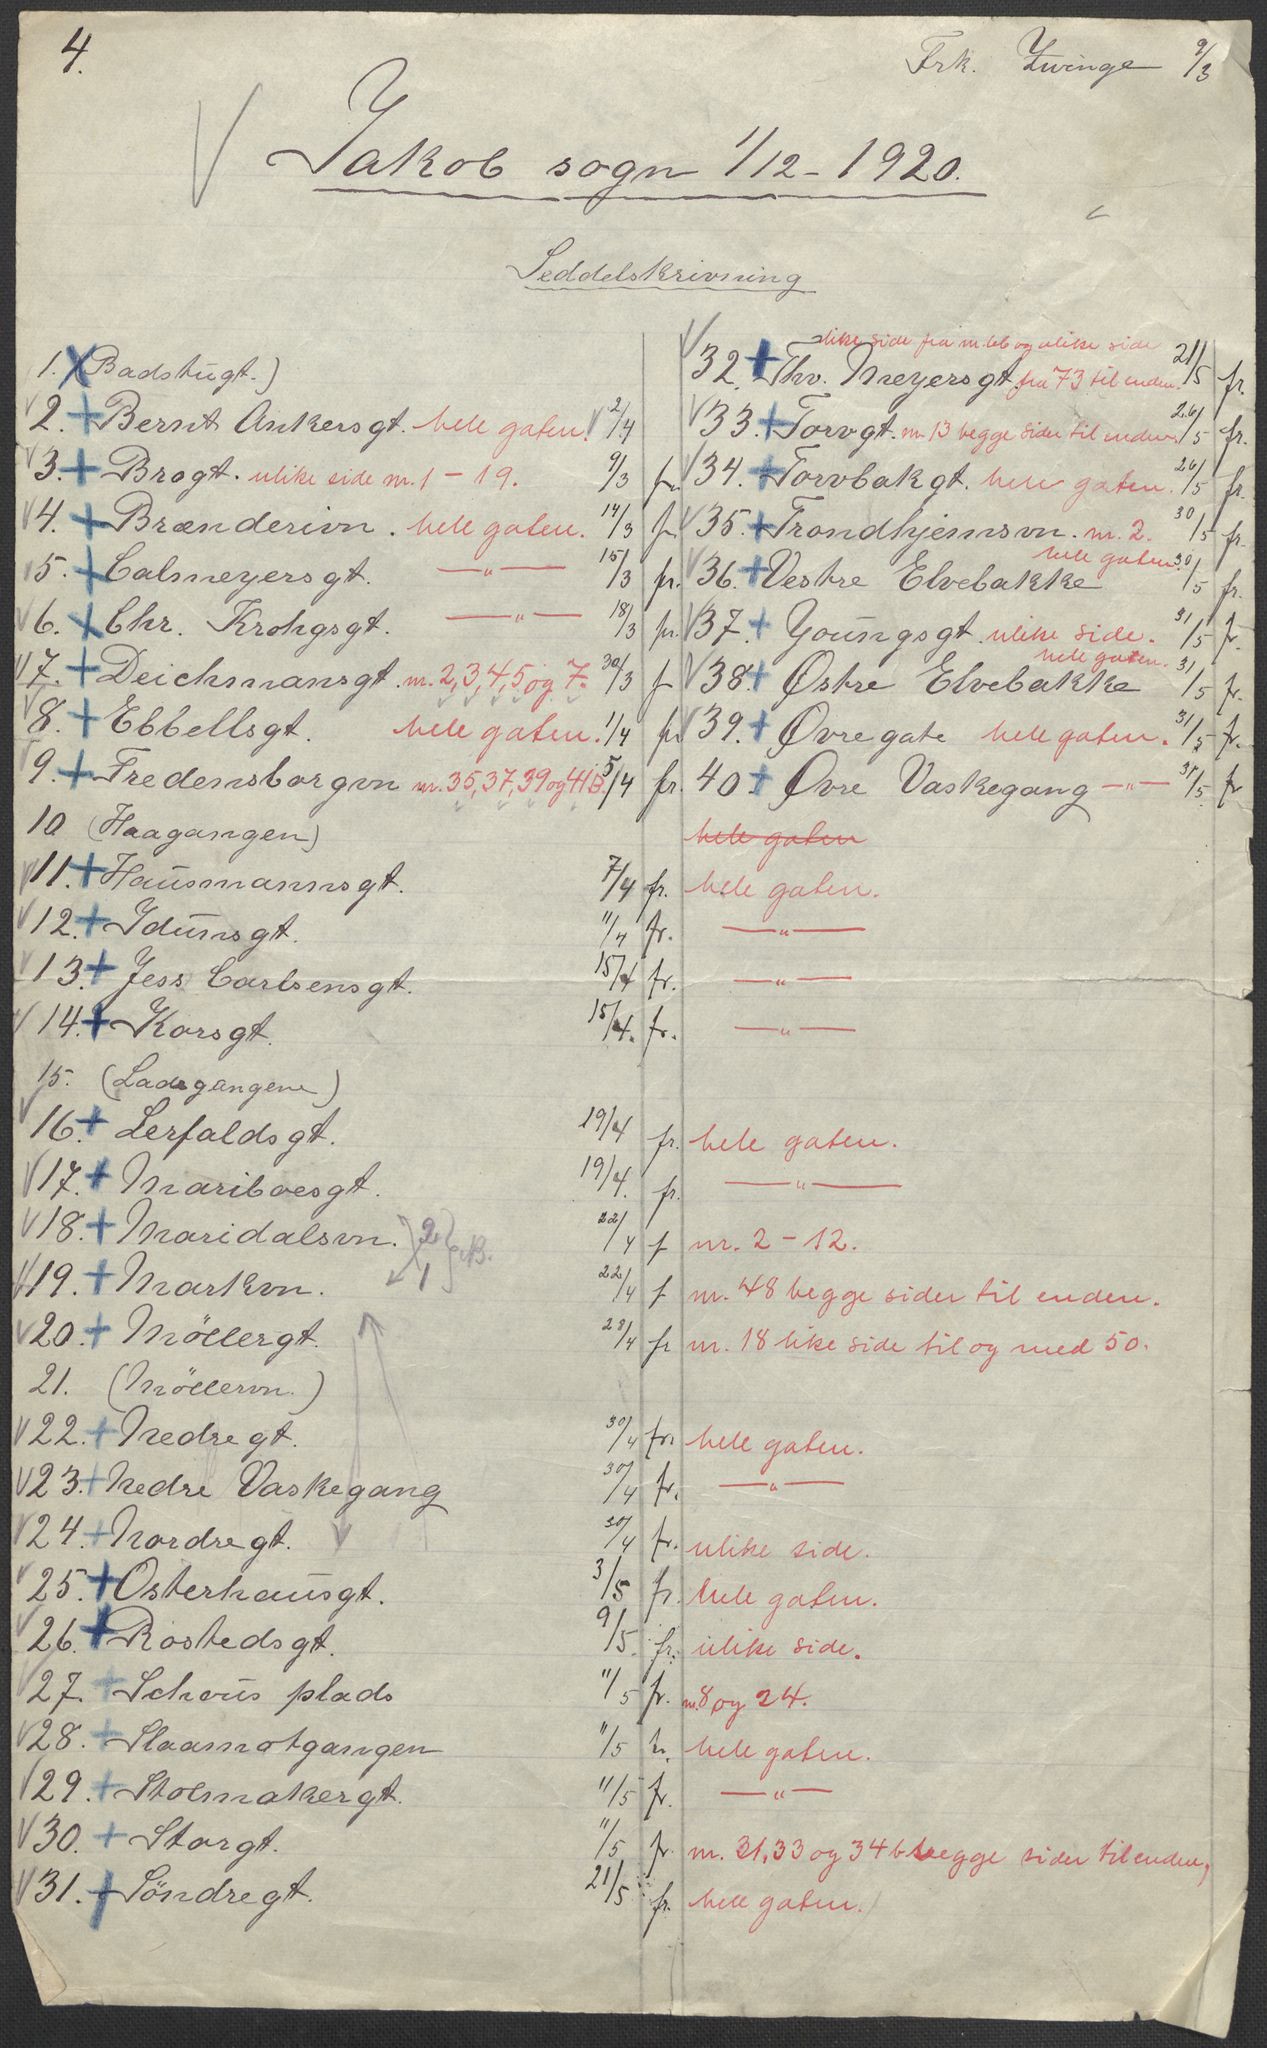 4.
Frk. Zwinge 9/3
Jakob sogn 1/12 - 1920.
Seddelskrivning
1. (Badstugt.)
2. + Bernt Ankersgt. hele gaten. 2/4
3. + Brogt. ulike side nr. 1 - 19. 9/3 fr.
4. + Brænderivn. hele gaten. 14/3 fr.
5. + Calmeyersgt. —„— 15/3 fr.
6. + Chr. Krohgsgt. —„— 18/3 fr.
7. + Deichmansgt. nr. 2, 3, 4, 5, og 7. 30/3 fr
8. + Ebbellsgt. hele gaten. 1/4 fr
9. + Fredensborgvn nr. 35, 37, 39 og 41B. 5/4 fr.
10 (Haagangen)
11. + Hausmannsgt. 7/4 fr. hele gaten.
12. + Idunsgt. 11/4 fr. —„—
13. + Jess Carlsensgt. 15/4 fr. —„—
14. + Korsgt. 15/4. fr. —„—
15. (Ladegangene)
16. + Lerfaldsgt. 19/4 fr. hele gaten.
17. + Mariboesgt. 19/4. fr. —„—
18. + Maridalsvn. 2 22/4 f nr. 2 - 12.
19. + Markvn. 1 22/4 f nr. 48 begge sider til enden.
20. + Möllergt. 28/4 fr nr. 18 like side til og med 50.
21. (Möllervn.)
22. + Nedregt. 30/4 fr. hele gaten.
23. + Nedre Vaskegang 30/4 fr. —„—
24. + Nordregt. 30/4 fr. ulike side.
25. + Osterhausgt. 3/5 fr. hele gaten.
26. + Rostedsgt. 9/5 fr. ulike side.
27. + Schous plads 11/5 fr. nr. 8 og 24.
28. + Slaamotgangen 11/5 fr. hele gaten.
29. + Stolmakergt. 11/5 fr. —„—
30. + Storgt. 11/5 fr. nr. 31, 33 og 34 b begge sider til enden,
31. + Söndregt. 21/5 fr. hele gaten.
like side fra nr. 66 og ulike side
32. + Thv. Meyersgt. fra 73 til enden. 21/5 fr.
33. + Torvgt. nr. 13 begge sider til enden. 26/5 fr.
34. + Torvbakgt. hele gaten. 26/5 fr.
35. + Trondhjemsvn. nr. 2. 30/5 fr.
36. + Vestre Elvebakke hele gaten. 30/5 fr.
37. + Youngsgt. ulike side. 31/5 fr.
38. + Østre Elvebakke hele gaten. 31/5 fr.
39. + Øvregate hele gaten. 31/5 fr.
40 + Øvre Vaskegang —„— 31/5 fr
hele gaten